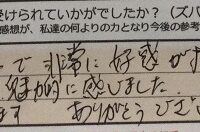 受けられていかがでしたか？（ズバ
感想が、私達の何よりの力となり今後の参考
で 非常に 好感が
魅力的に感じました.
ます ありがとうござい